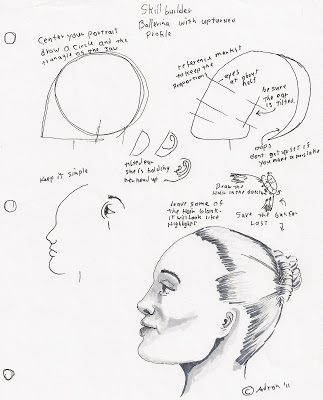 Skill builder
Ballerina with upturned
Profile
Center your Portrait
draw a Circle and the
triangle as the Jaw
reference marks
to keep the
Proportions
eyes at about
half
be sure
The ear
is tilted.
oops
dont get upset if
you make a mistake
tilted ear
she is holding
her head up
Keep it simple
Draw the
in the
leave some of
the hair blank.
it will look like
highlight
Save the bun for
Last
© Adron '11